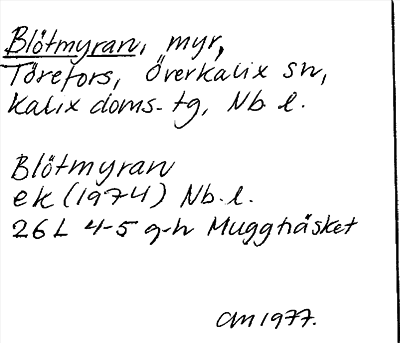 Blötmyran, myr,
Törefors, Överkalix sn,
Kalix doms. tg, Nb. l.
Blötmyran
ek (1974) Nb. l.
26L 4-5 g-h Muggträsket
CM 1977.